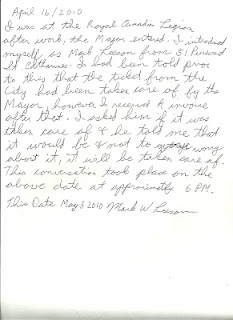 April 16/2010
I was at the Royal Canadian Legion
after work, the Mayor entered. I introduced
myself as Mark Leeson from 51 Pinewood
St Catharines. I had been told prior
to this that the ticket from the
City had been taken care of by the
Mayor, however I received A invoice
after that. I asked him if it was
taken care of & he told me that
it would be & not to worry
about it, it will be taken care of.
This conversation took place on the
above date at approximatly 6 PM.
This Date May 3 2010 Mark W Leeson